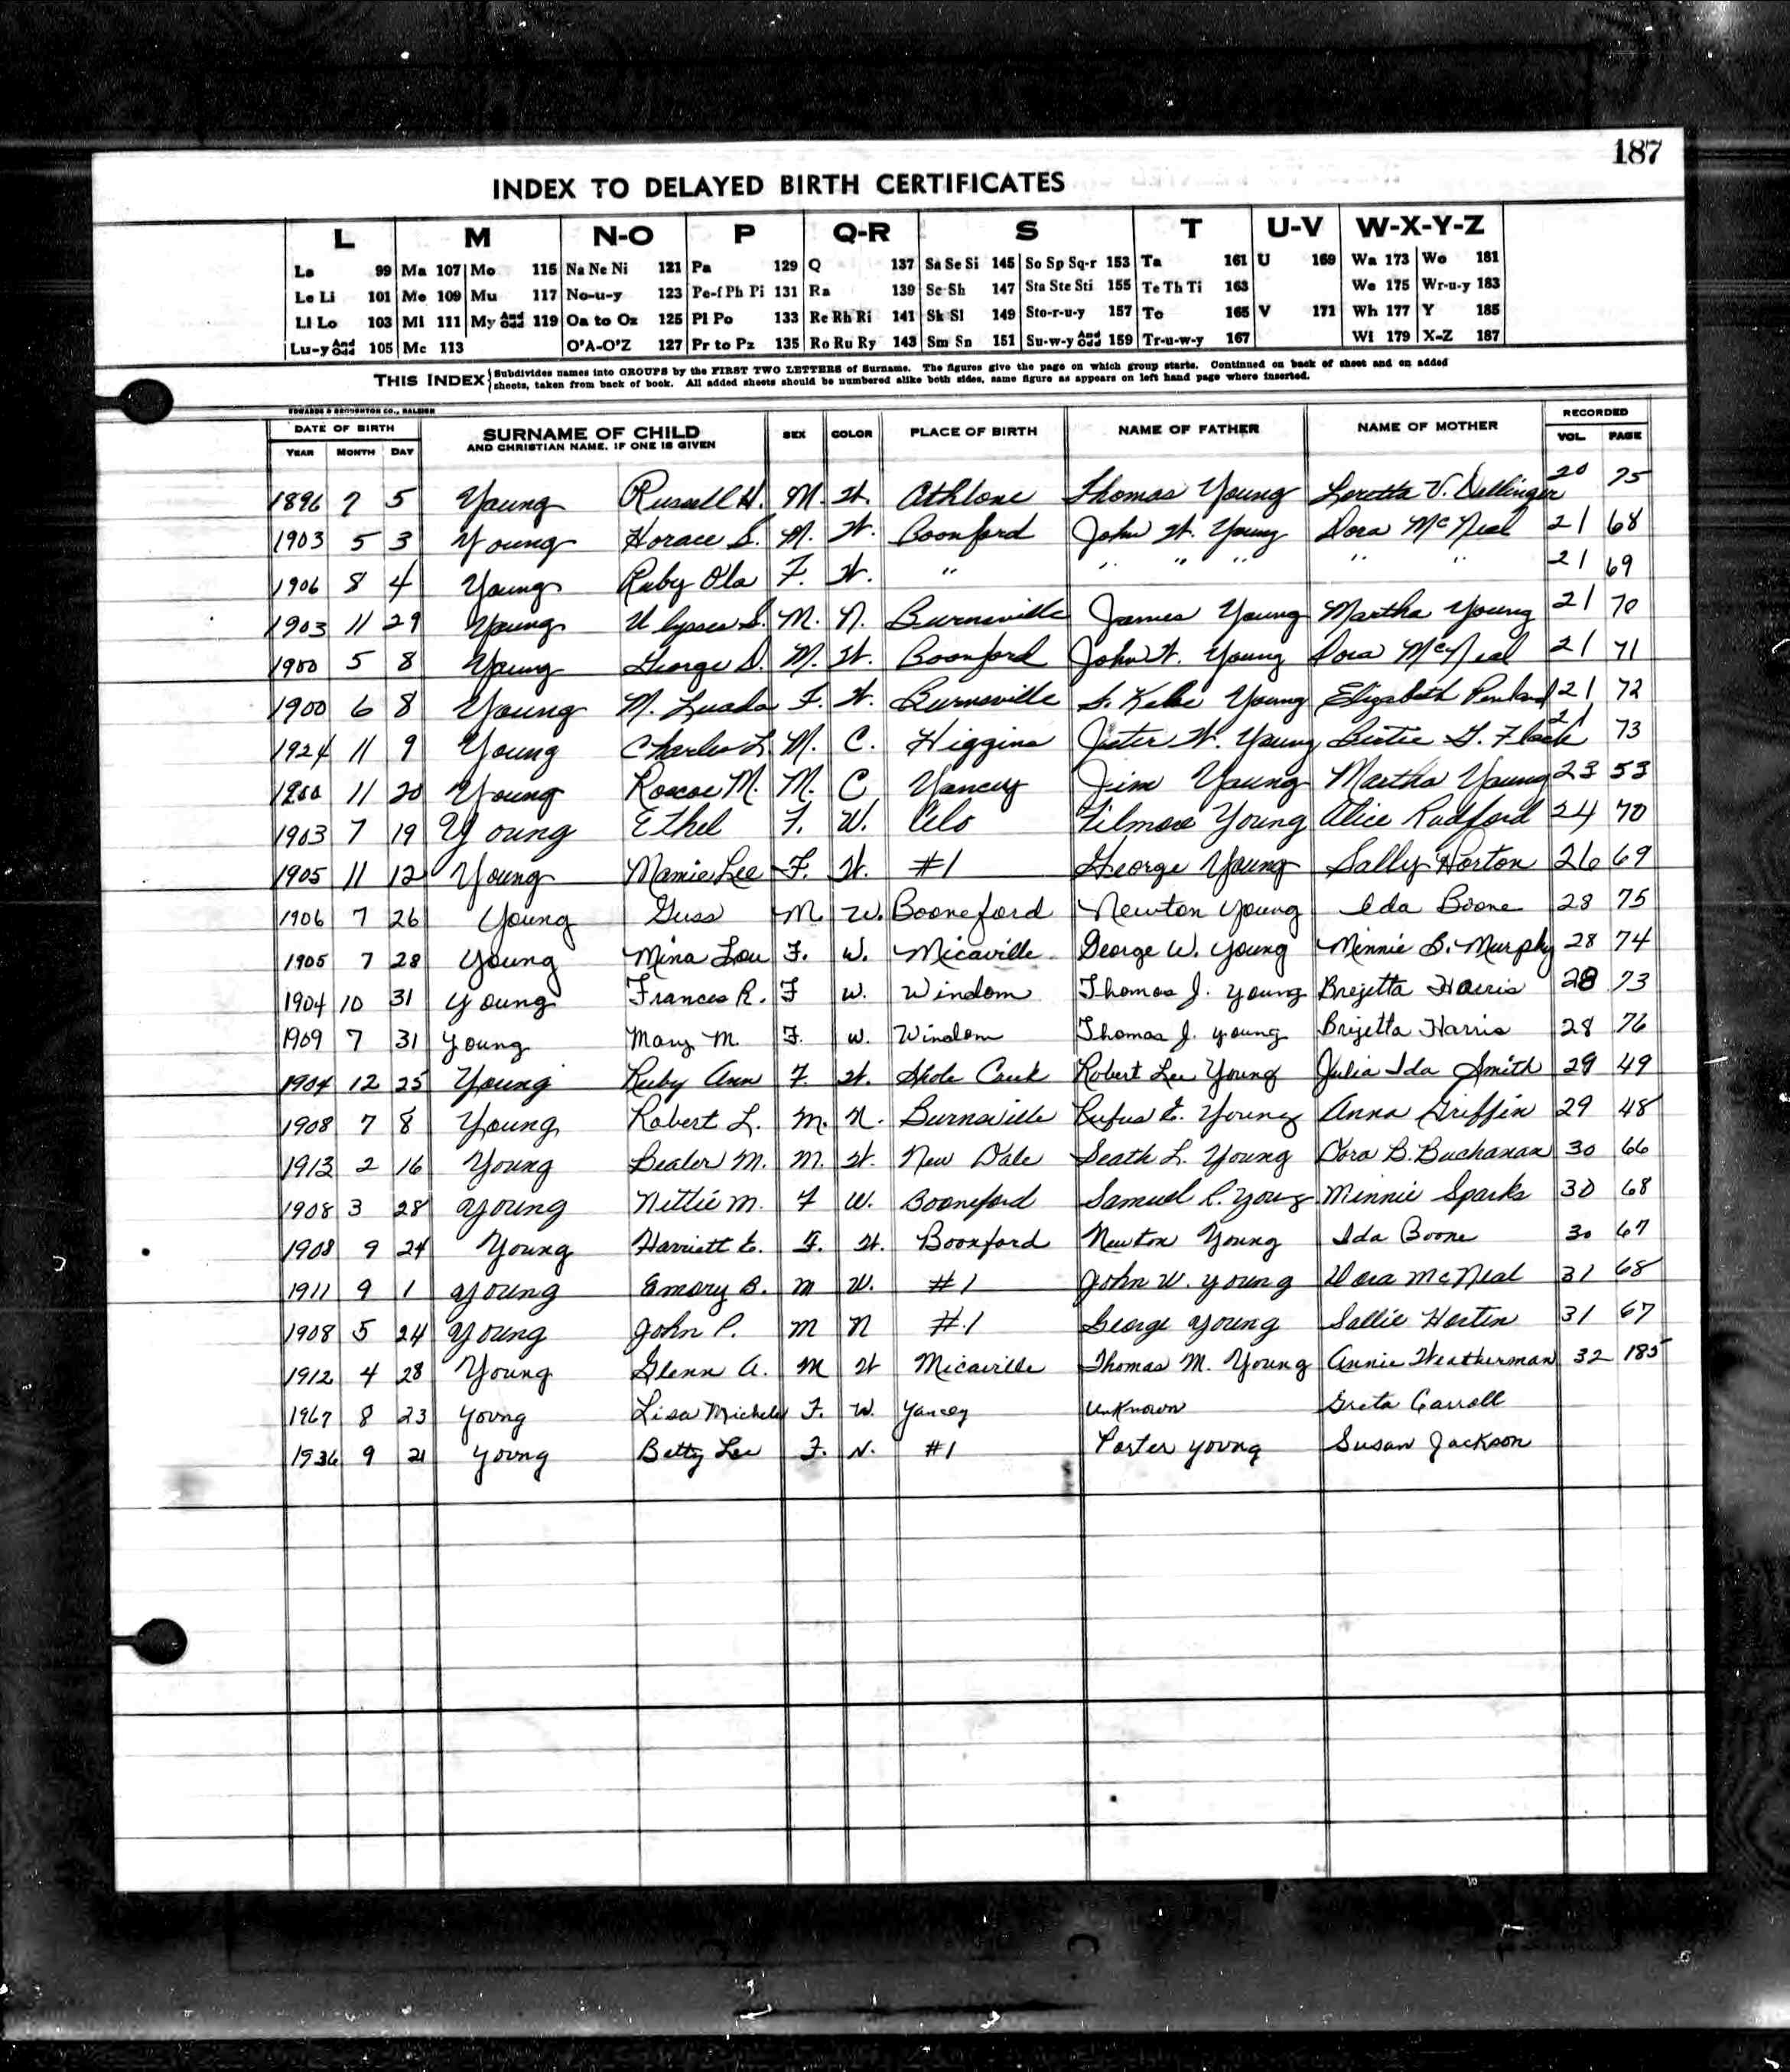 187
INDEX TO DELAYED BIRTH CERTIFICATES
L M N-O P Q-R S T U-V W-X-Y-Z
La 99 Ma 107 Mo 115 Na Ne Ni 121 Pa 129 Q 137 Sa Se Si 145 So Sp Sq-r 153 Ta 161 U 169 Wa 173 Wo 181
Le Li 101 Me 109 Mu 117 No-u-y 123 Pe-f Ph Pi 131 Ra 139 Sc Sh 147 Sta Ste Sti 155 Te Th Ti 163 We 175 Wr-u-y 183
Ll Lo 103 Mi 111 My And Odd 119 Oa to Oz 125 Pl Po 133 Re Rh Ri 141 Sk Sl 149 Sto-r-u-y 157 To 165 V 171 Wh 177 Y 185
Lu-y And Odd 105 Mc 113 O'A-O'Z 127 Pr to Pz 135 Ro Ru Ry 143 Sm Sn 151 Su-w-y And Odd 159 Tr-u-w-y 167 Wi 179 X-Z 187
THIS INDEX { Subdivides names into GROUPS by the FIRST TWO LETTERS of Surname. The figures give the page on which group starts. Continued on back of sheet and on added
sheets, taken from back of book. All added sheets should be numbered alike both sides, same figure as appears on left hand page where inserted.
EDWARDS & BROUGHTON CO., RALEIGH
DATE OF BIRTH SURNAME OF CHILD SEX COLOR PLACE OF BIRTH NAME OF FATHER NAME OF MOTHER RECORDED
YEAR MONTH DAY AND CHRISTIAN NAME, IF ONE IS GIVEN VOL. PAGE
1896 7 5 Young Russell H. M. W. Athlone Thomas Young Loretta V. Dellinger 20 75
1903 5 3 Young Horace S. M. W. Boonford John W. Young Dora McNeal 21 68
1906 8 4 Young Ruby Ola F. W. " " " " " " 21 69
1903 11 29 Young Ulysses S. M. N. Burnsville James Young Martha Young 21 70
1900 5 8 Young George D. M. W. Boonford John W. Young Dora McNeal 21 71
1900 6 8 Young M. Luada F. W. Burnsville Young Elizabeth Penland 21 72
1924 11 9 Young Charles L. M. C. Higgins Jeter W. Young Bertie G. Flack 21 73
1900 11 20 Young Roscoe M. M. C Yancey Jim Young Martha Young 23 53
1903 7 19 Young Ethel F. W. Celo Filmore Young Alice Radford 24 70
1905 11 12 Young Mamie Lee F. W. #1 George Young Sally Horton 26 69
1906 7 26 Young Guss M. W. Booneford Newton Young Ida Boone 28 75
1905 7 28 Young Mina Lou F. W. Micaville George W. Young Minnie B. Murphy 28 74
1904 10 31 Young Frances R. F W. Windom Thomas J. Young Brejetta Harris 28 73
1909 7 31 Young Mary M. F. W. Windom Thomas J. Young Brijetta Harris 28 76
1904 12 25 Young Ruby Ann F. W. Shole Creek Robert Lee Young Julia Ida Smith 29 49
1908 7 8 Young Robert L. M. N. Burnsville Rufus E. Young Anna Griffin 29 48
1913 2 16 Young Bealer M. M. W. New Dale Seath L. Young Cora B. Buchanan 30 66
1908 3 28 Young Nettie M. F W. Booneford Samuel L. Young Minnie Sparks 30 68
1908 9 24 Young Harriett E. F. W. Boonford Newton Young Ida Boone 30 67
1911 9 1 Young Emory B. M W. #1 John W. Young Dora McNeal 31 68
1908 5 24 Young John P. M N #1 George Young Sallie Horten 31 67
1912 4 28 Young Glenn A. M W Micaville Thomas M. Young Annie Weatherman 32 185
1967 8 23 Young Lisa Michele F. W. Yancey Unknown Greta Carroll
1936 9 21 Young Betty Lee F. N. #1 Porter Young Susan Jackson